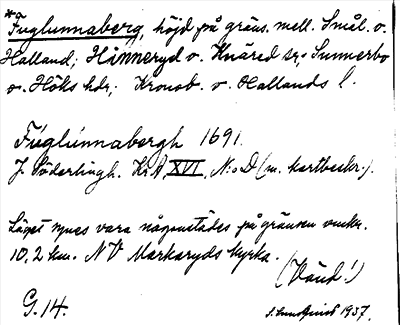 *Fuglunnaberg, höjd på gräns. mell. Smål. o.
Halland; Hinneryd o. Knäred sr; Sunnerbo
o. Höks hdr; Kronob. o. Hallands l.
Fuglunnabergh 1691.
J. Söderlingh. KrA, XVI, N:o D (m. kartbeskr.).
Läget synes vara någonstädes på gränsen omkr.
10,2 km. NV Markaryds kyrka.
(Vänd!)
G. 14.
S. Lundquist 1937.